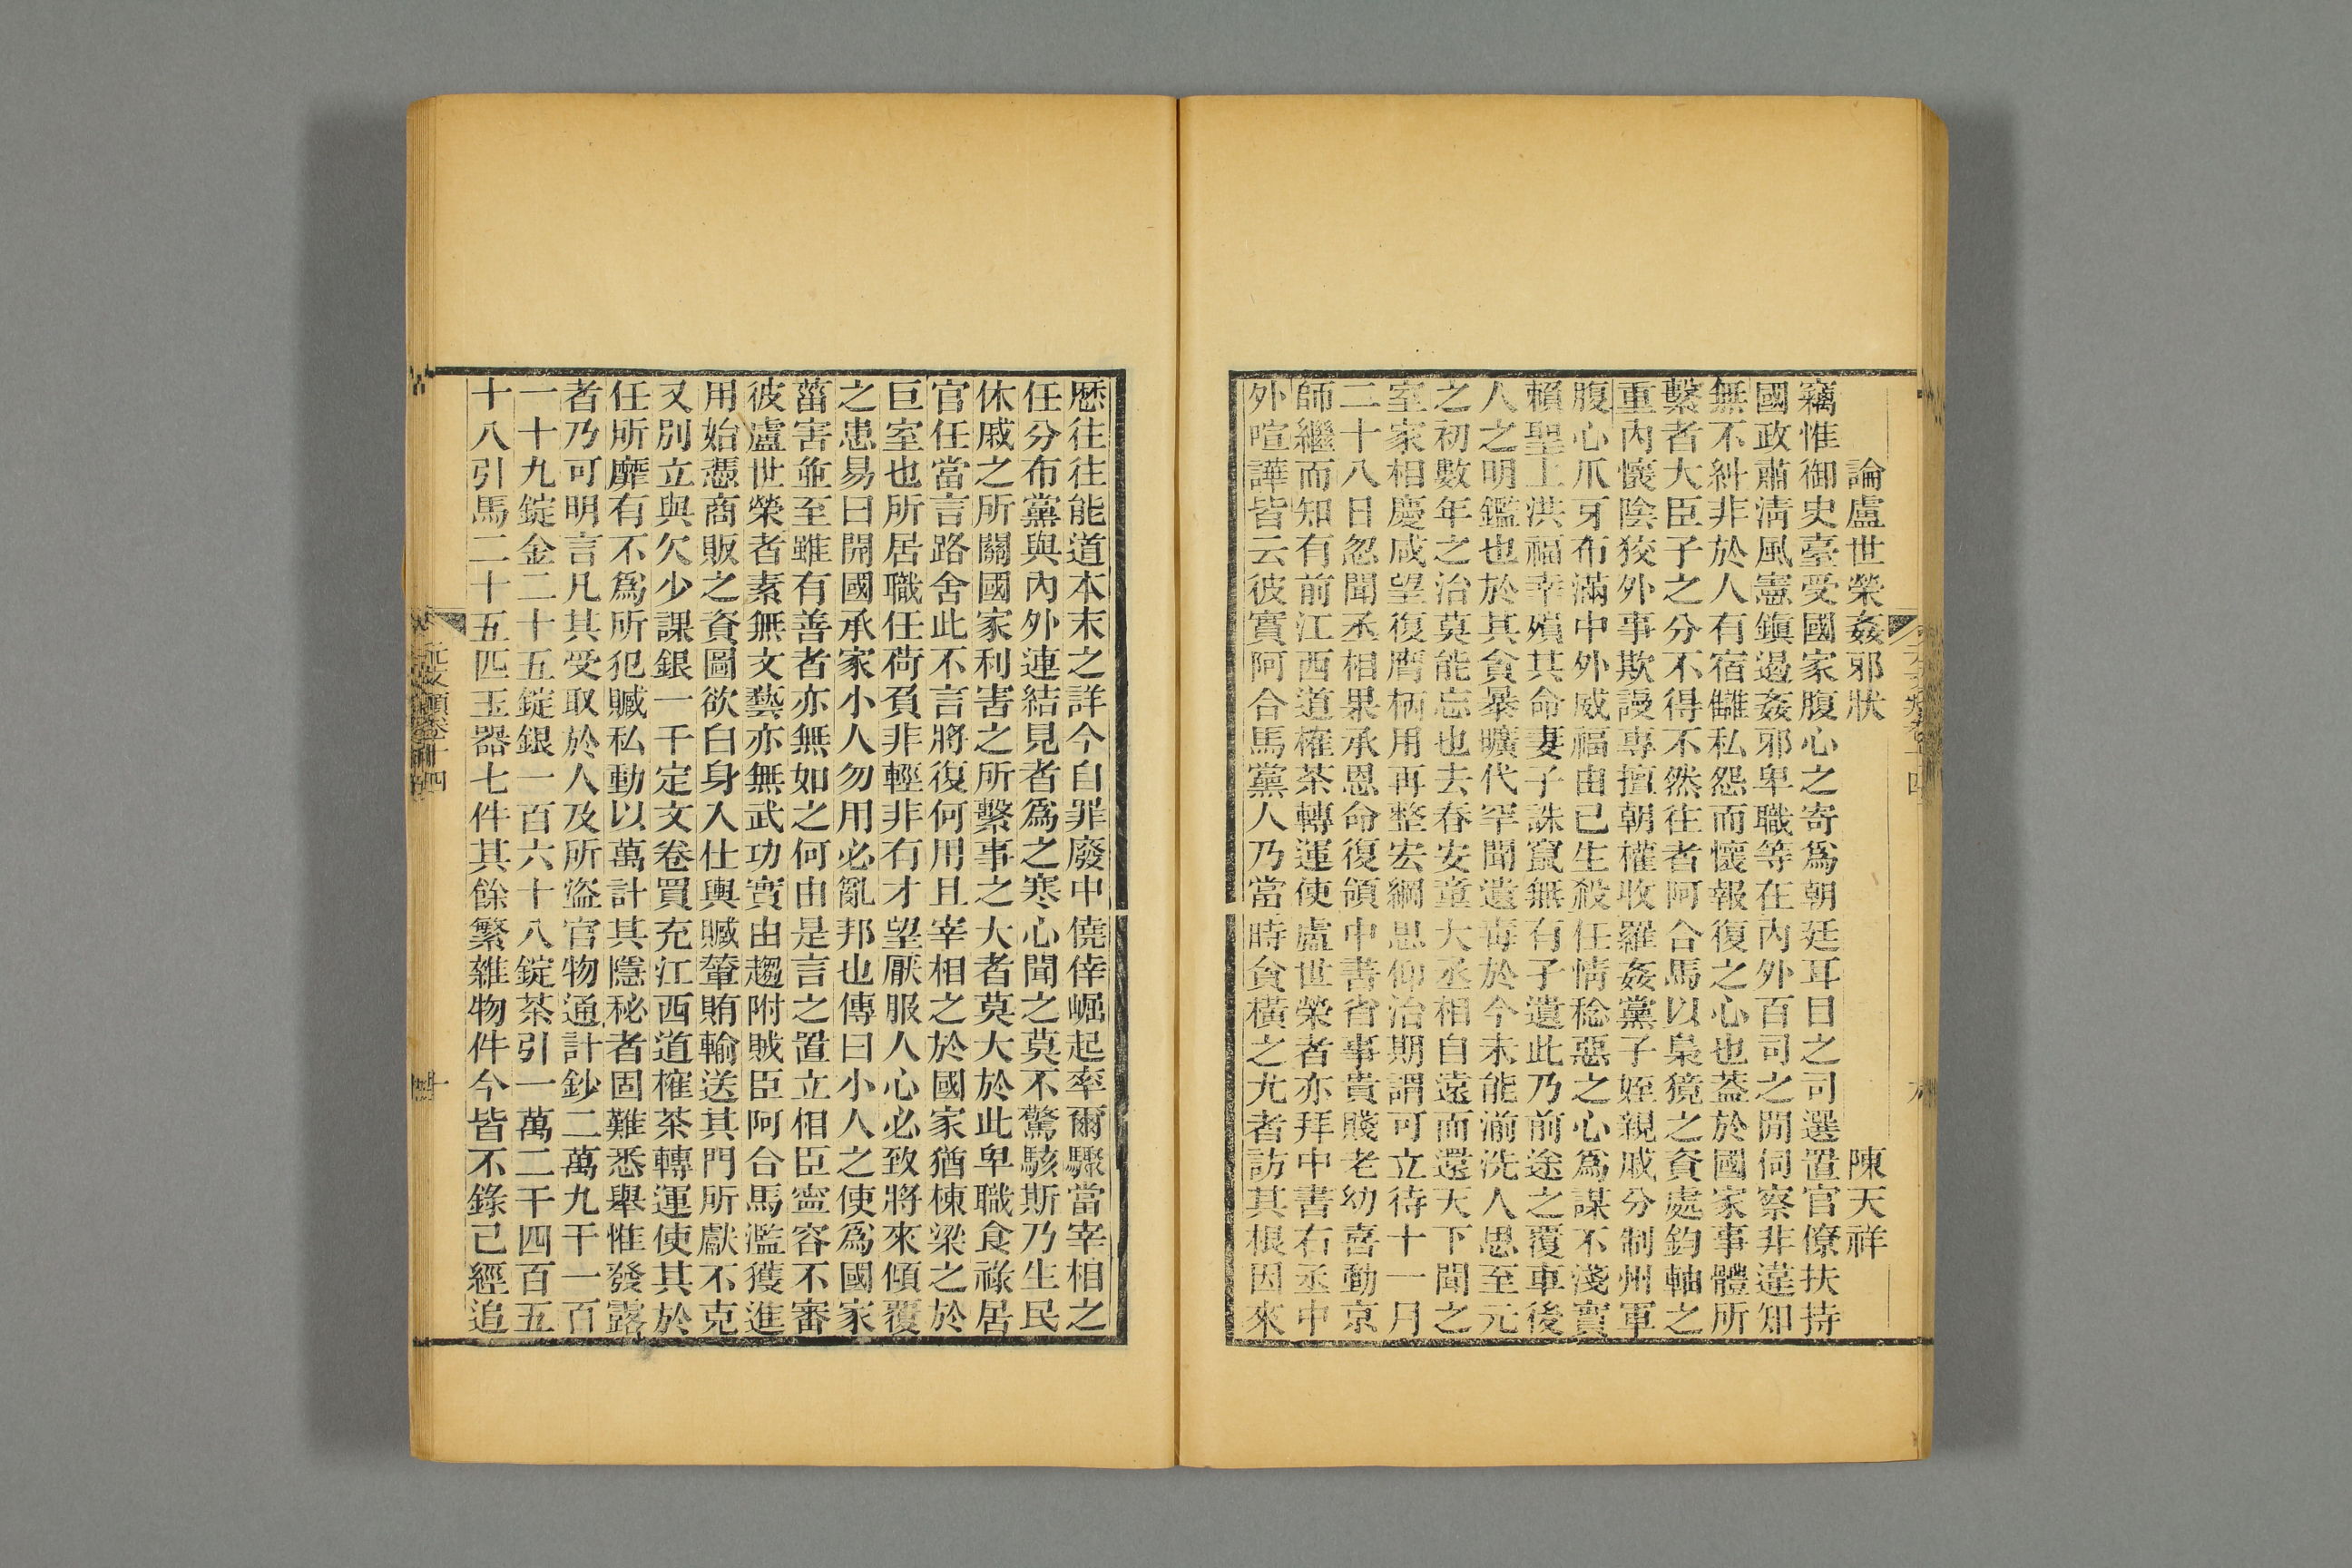 論盧世榮姦邪狀 陳天祥
竊惟御史臺受國家腹心之寄爲朝廷耳目之司選置官僚扶持
國政肅淸風憲鎭遏姦邪卑職等在内外百司之閒伺察非違知
無不糾非於人有宿讎私怨而懷報復之心也葢於國家事體所
繫者大臣子之分不得不然往者阿合馬以梟獍之資處鈞軸之
重内懷陰狡外事欺謾專擅朝權收羅姦黨子姪親戚分制州軍
腹心爪牙布滿中外威福由己生殺任情稔惡之心爲謀不淺實
賴聖上洪福幸殞其命妻子誅竄無有子遺此乃前途之覆車後
人之明鑑也於其貪暴曠代罕聞遺毒於今未能湔洗人思至元
之初數年之治莫能忘也去春安童大丞相自遠而還天下聞之
室家相慶咸望復膺柄用再整宏綱思仰治期謂可立待十一月
二十八日忽聞丞相果承恩命復領中書省事貴賤老幼喜動京
師繼而知有前江西道榷茶轉運使盧世榮者亦拜中書右丞中
外喧譁皆云彼實阿合馬黨人乃當時貪橫之尤者訪其根因來
歷往往能道本末之詳今自罪廢中僥倖崛起率爾驟當宰相之
任分布黨與內外連結見者爲之寒心聞之莫不驚駭斯乃生民
休戚之所關國家利害之所繫事之大者莫大於此卑職食祿居
官任當言路舍此不言將復何用且宰相之於國家猶棟梁之於
巨室也所居職任荷負非輕非有才望厭服人心必致將來傾覆
之患易曰開國承家小人勿用必亂邦也傳曰小人之使爲國家
菑害並至雖有善者亦無如之何由是言之置立相臣寍容不審
彼盧世榮者素無文藝亦無武功實由趨附賊臣阿合馬濫獲進
用始憑商販之資圖欲白身入仕輿贓輦賄輸送其門所獻不克
又別立與欠少課銀一千定文卷買充江西道榷茶轉運使其於
任所靡有不爲所犯贓私動以萬計其隱秘者固難悉舉惟發露
者乃可明言凡其受取於人及所盜官物通計鈔二萬九千一百
一十九錠金二十五錠銀一百六十八錠茶引一萬二千四百五
十八引馬二十五匹玉器七件其餘繁雜物件今皆不錄已經追